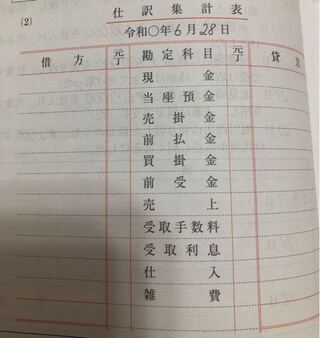 (2)
仕訳集計表
令和〇年6月28日
借方 元丁 勘定科目 元丁 貸方
現金
当座預金
売掛金
前払金
買掛金
前受金
売上
受取手数料
受取利息
仕入
雑費